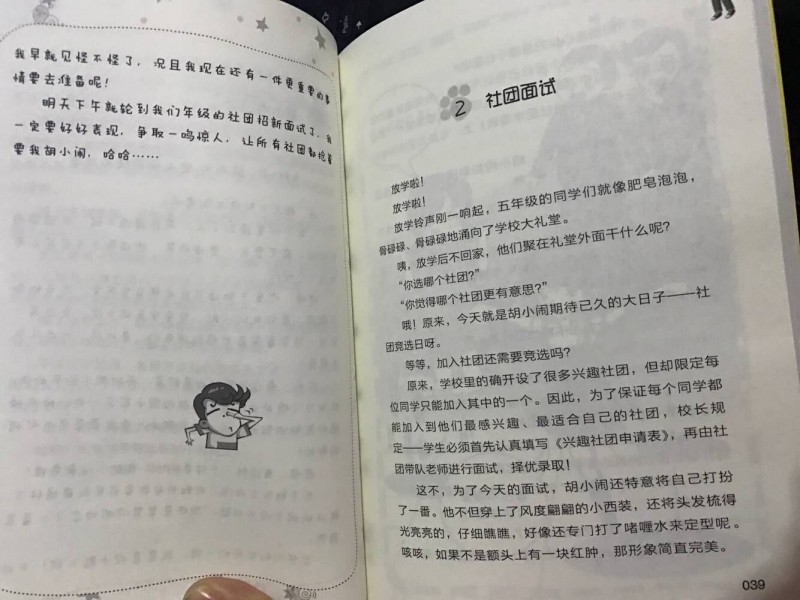 我早就见怪不怪了，况且我现在还有一件更重要的事
情要去准备呢！
明天下午就轮到我们年级的社团招新面试了，我
一定要好好表现，争取一鸣惊人，让所有社团都抢着
要我胡小闹，哈哈……
2 社团面试
放学啦！
放学啦！
放学铃声刚一响起，五年级的同学们就像肥皂泡泡，
骨碌碌、骨碌碌地涌向了学校大礼堂。
咦，放学后不回家，他们聚在礼堂外面干什么呢？
“你选哪个社团？”
“你觉得哪个社团更有意思？”
哦！原来，今天就是胡小闹期待已久的大日子——社
团竞选日呀。
等等，加入社团还需要竞选吗？
原来，学校里的确开设了很多兴趣社团，但却限定每
位同学只能加入其中的一个。因此，为了保证每个同学都
能加入到他们最感兴趣、最适合自己的社团，校长规
定——学生必须首先认真填写《兴趣社团申请表》，再由社
团带队老师进行面试，择优录取！
这不，为了今天的面试，胡小闹还特意将自己打扮
了一番。他不但穿上了风度翩翩的小西装，还将头发梳得
光亮亮的，仔细瞧瞧，好像还专门打了啫喱水来定型呢。
咳咳，如果不是额头上有一块红肿，那形象简直完美。
039